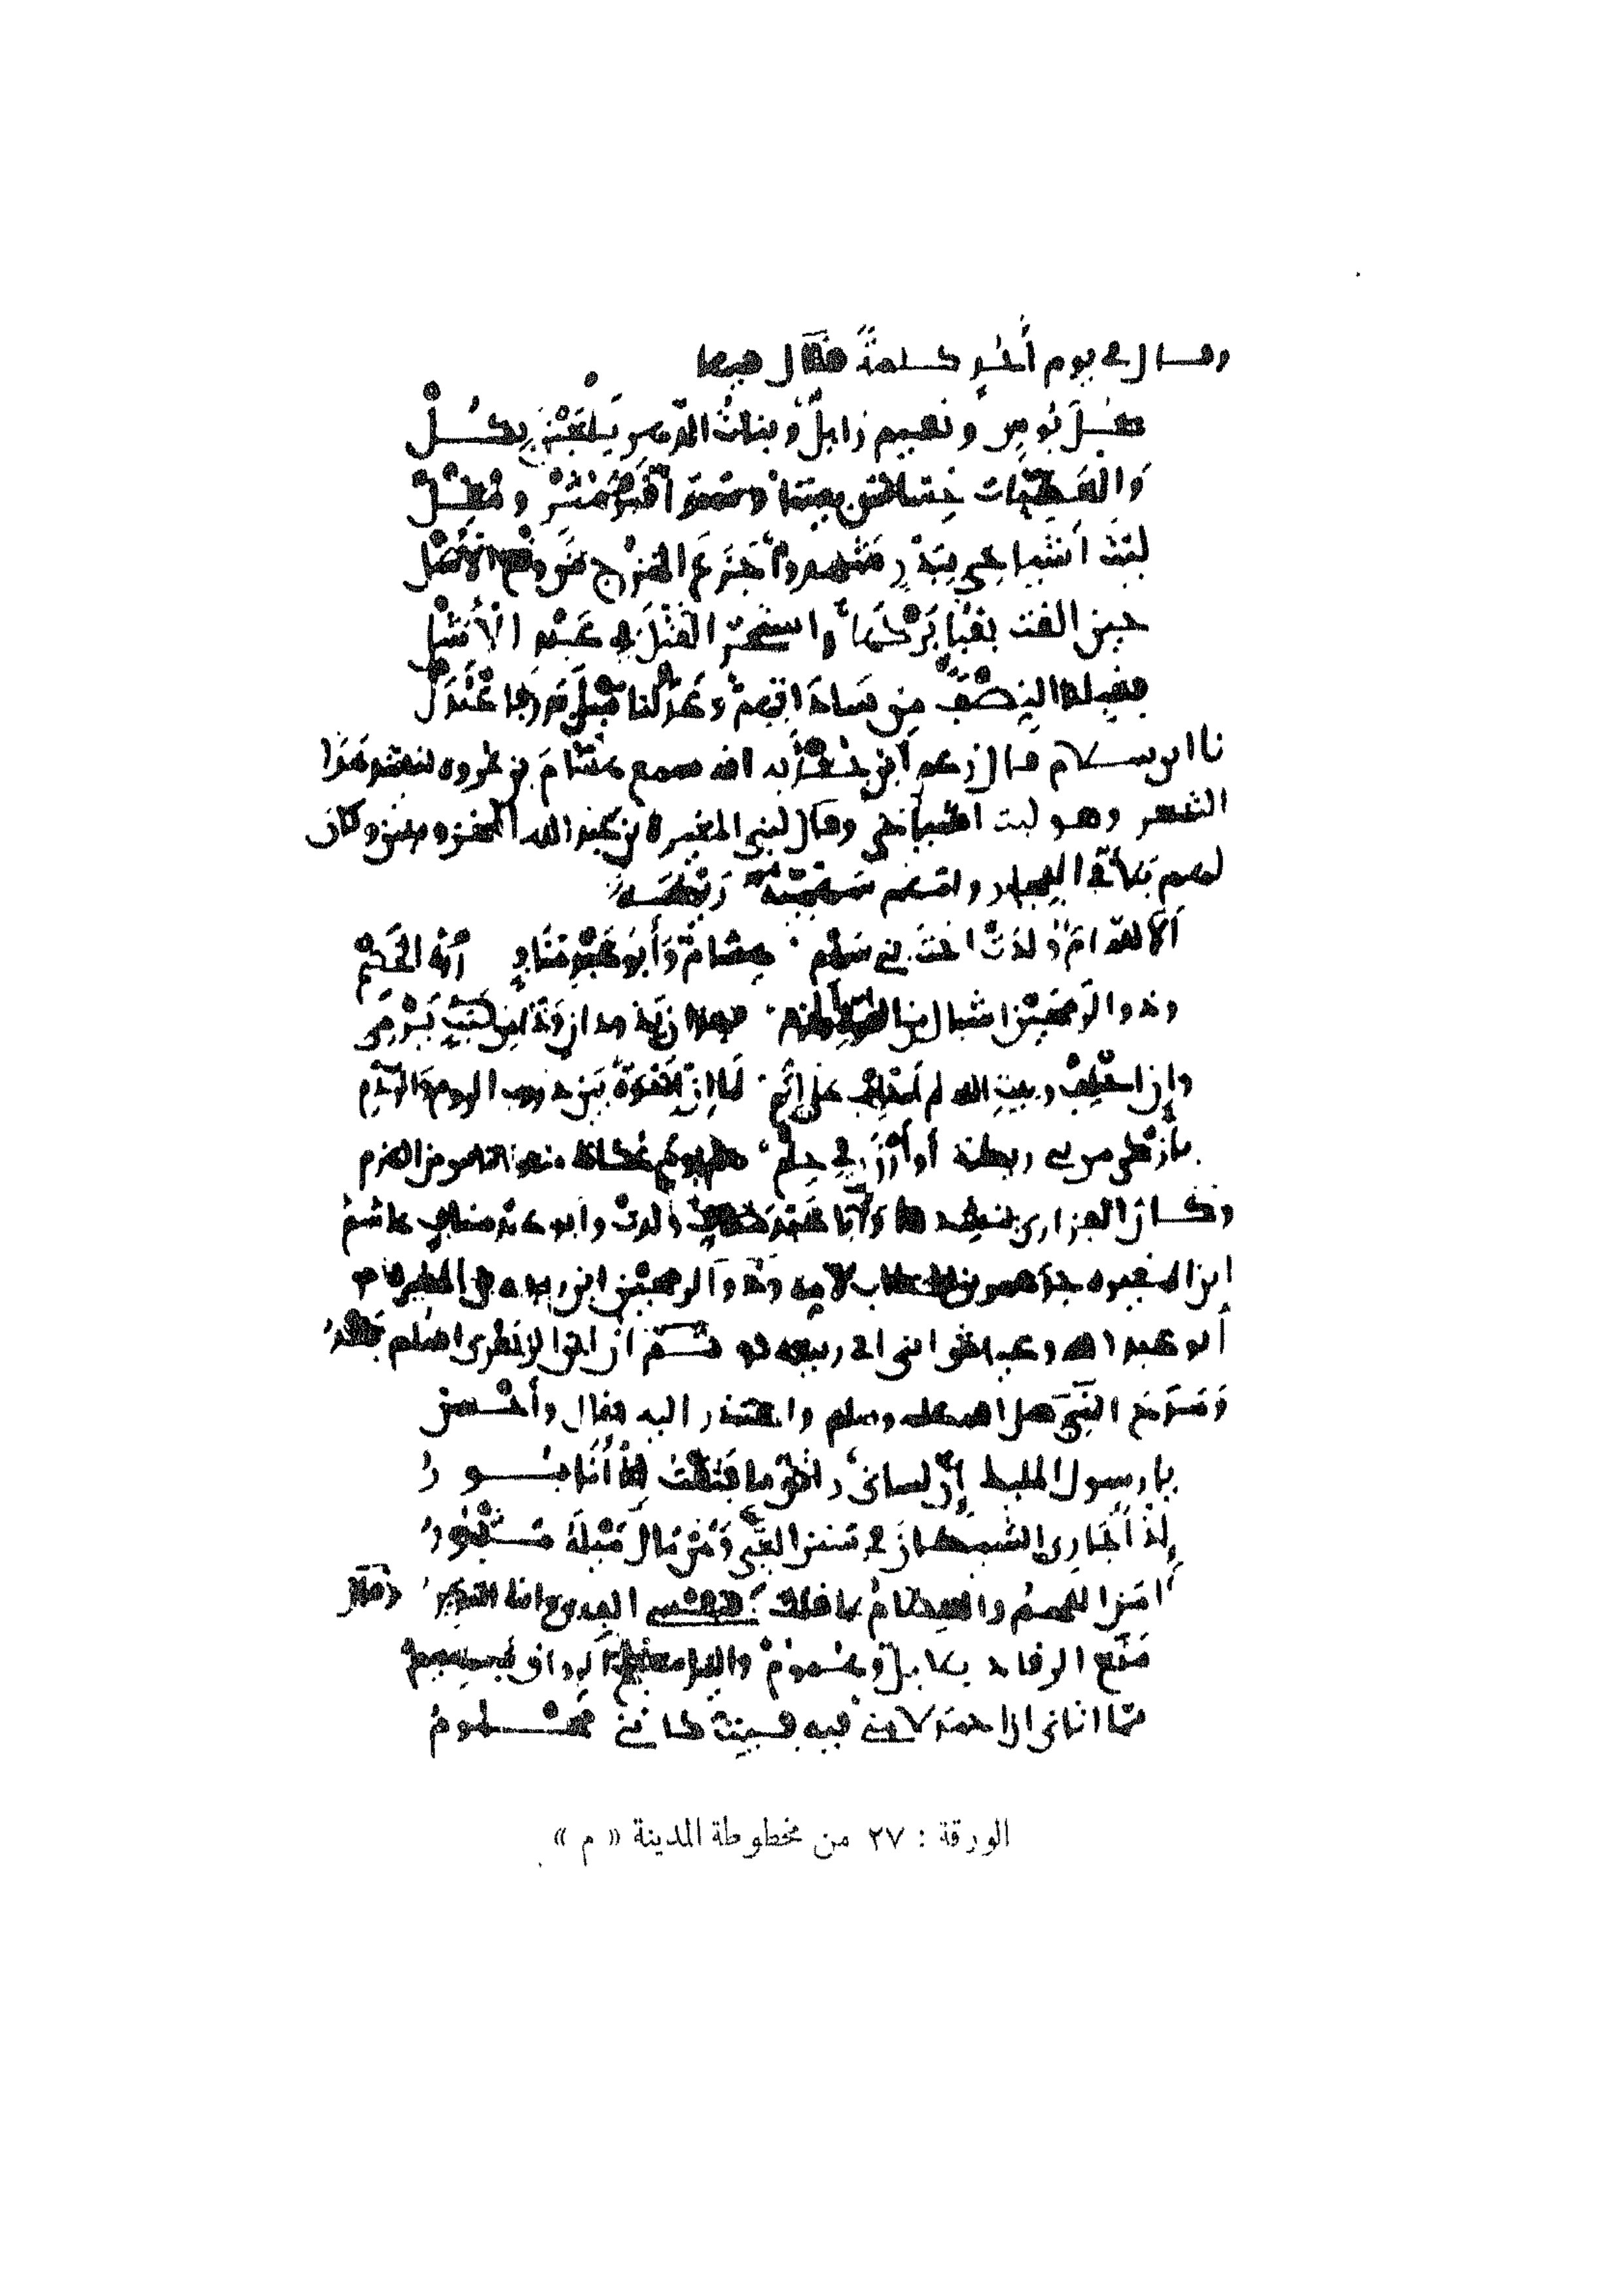 وقال في يوم أحد كلمة فقال فيها
كل بوس ونعيم زايل وبنات الدهر يلعبن بكل
والعطيات خساس بيننا وسواء قبر مثر ومقل
ليت أشياخي ببدر شهدوا جزع الخزرج من وقع الأسل
حين القت بقباء بركها واستحر القتل في عبد الأشل
فقبلنا النصف من ساداتهم وعدلنا ميل بدر فاعتدل
نا ابن سلام قال زعم ابن جعدبه انه سمع هشام بن عروه ينشد هذا
الشعر وهو ليت اشياخي وقال لبني المغيرة بن عبد الله المخزوميين وكان
لهم بلاء في الفجار
ألا لله قوم ولدت اخت بني سهم هشام وأبو عبد مناف مدره الخصم
وذو الرمحين اشبال من القوة والحزم فهذان يذودان وذا من كثب يرمي
وإن احلف وبيت الله لم أحلف على إثم لما إن إخوة بين دروب الروم والردم
بأزكى من بني ريطة أو أرزن في حلم
وكان الفزاري ينشدها ولدت وأبو عبد مناف هاشم
ابن المغيره جد عمر بن الخطاب لامه وذو الرمحين ابن ربيعه بن المغيره
أبو عبد الله وعياش ابني ابي ربيعه ثم ان ابن الزبعرى اسلم
ومدح النبي صلى الله عليه وسلم واعتذر اليه فقال وأحسن
يا رسول المليك إن لساني راتق ما فتقت إذ أنا بور
إذ أجاري الشيطان في سنن الغي ومن مال ميله مثبور
امن اللحم والعظام بما قلت فنفسي الفدى وانت النذير وقال
منع الرقاد بلابل وهموم والليل معتلج الرواق بهيم
مما اتاني ان احمد لامني فيه فبت كانني محموم
الورقة : ٢٧ من مخطوطة المدينة « م »